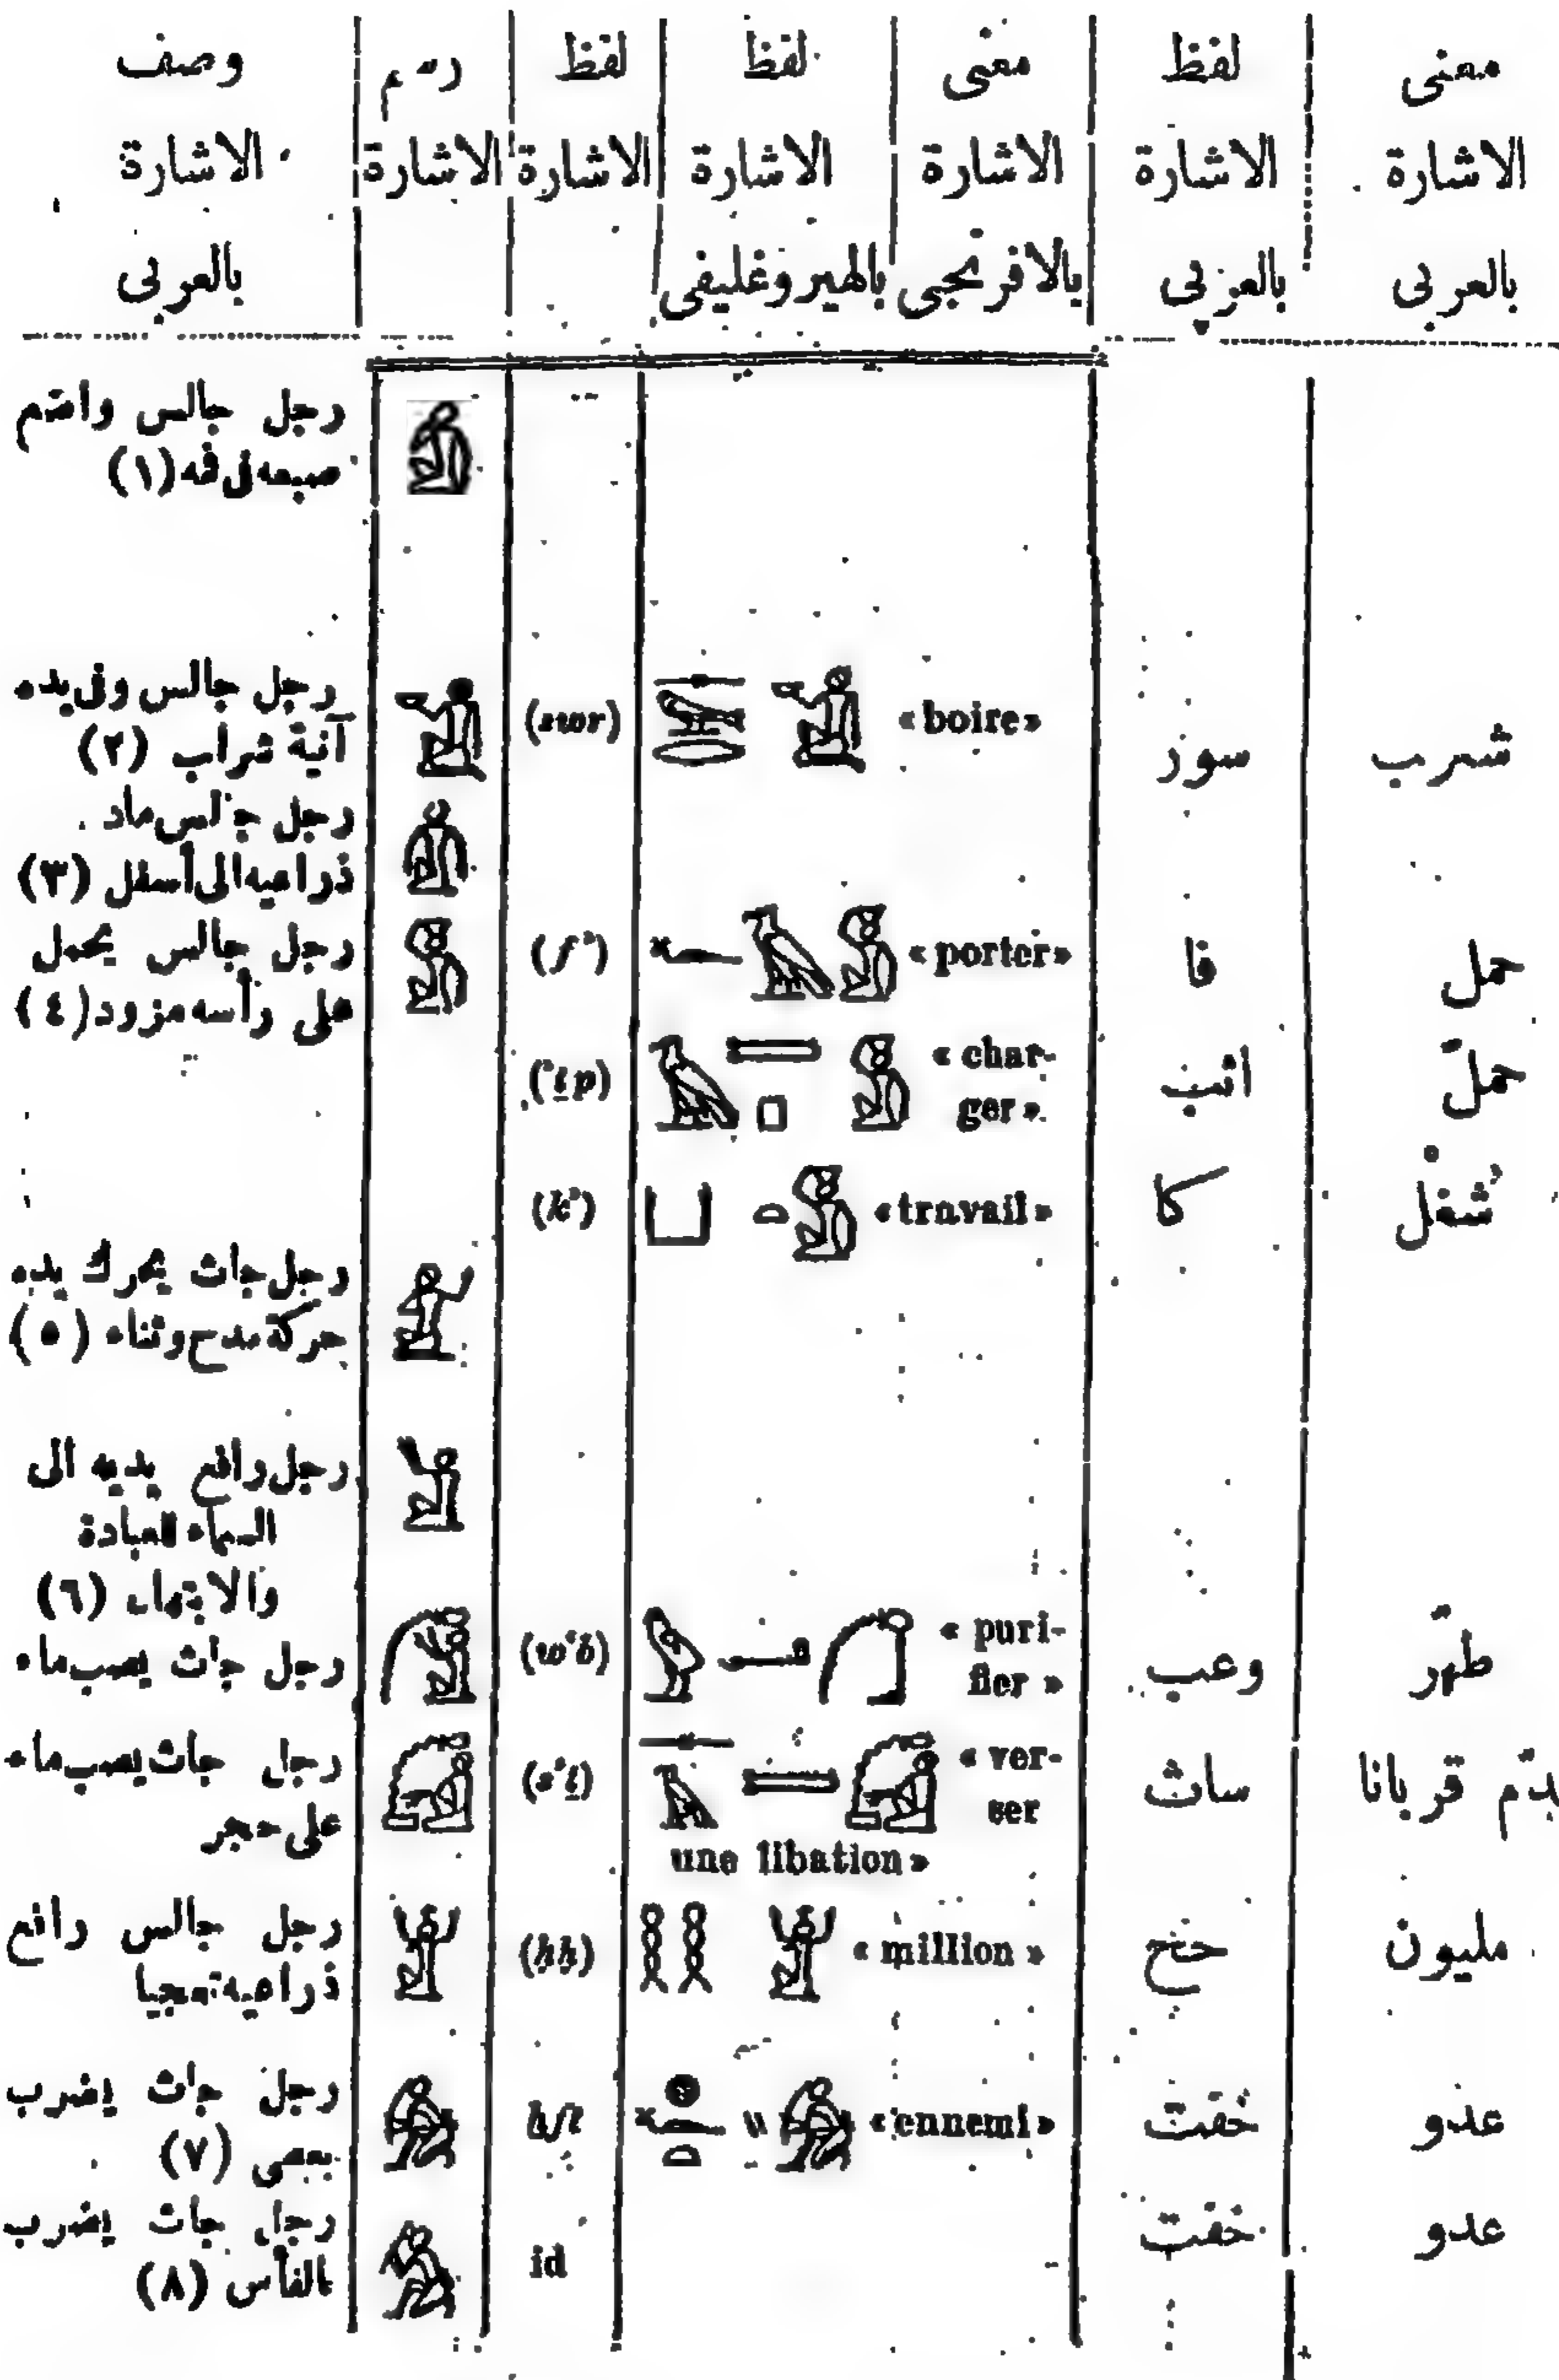 معنى الاشارة بالعربى | لفظ الاشارة بالعربي | معنى الاشارة بالافرنجى | لفظ الاشارة بالهيروغليفى | لفظ الاشارة | رسم الاشارة | وصف الاشارة بالعربى
رجل جالس واضع
صبعه فى فه (١)
شرب | سور | «boire» | (swr) | رجل جالس وفى يده
آنية شراب (٢)
رجل جالس ماد
ذراعيه الى أسفل (٣)
حمل | فا | «porter» | (fꜣ) | رجل جالس يحمل
على رأسه مزود (٤)
حمّل | اثب | «char-
ger» | (ꜣṯp)
شُغْل | كا | «travail» | (kꜣ)
رجل جاث يحرك يده
حركة مدح وثناء (٥)
رجل رافع يديه الى
السماء للعبادة
والابتهال (٦)
طهّر | وعب | «puri-
fier» | (wꜥb) | رجل جاث يصب ماء
دّم قربانا | ساث | «ver-
ser
une libation» | (sꜣṯ) | رجل جاث يصب ماء
على حجر
مليون | حح | «million» | (ḥḥ) | رجل جالس رافع
ذراعيه تعجبا
عدو | خفت | «ennemi» | ḫft | رجل جاث يضرب
بعصى (٧)
عدو | خفت | id | رجل جاث يضرب
بالفأس (٨)